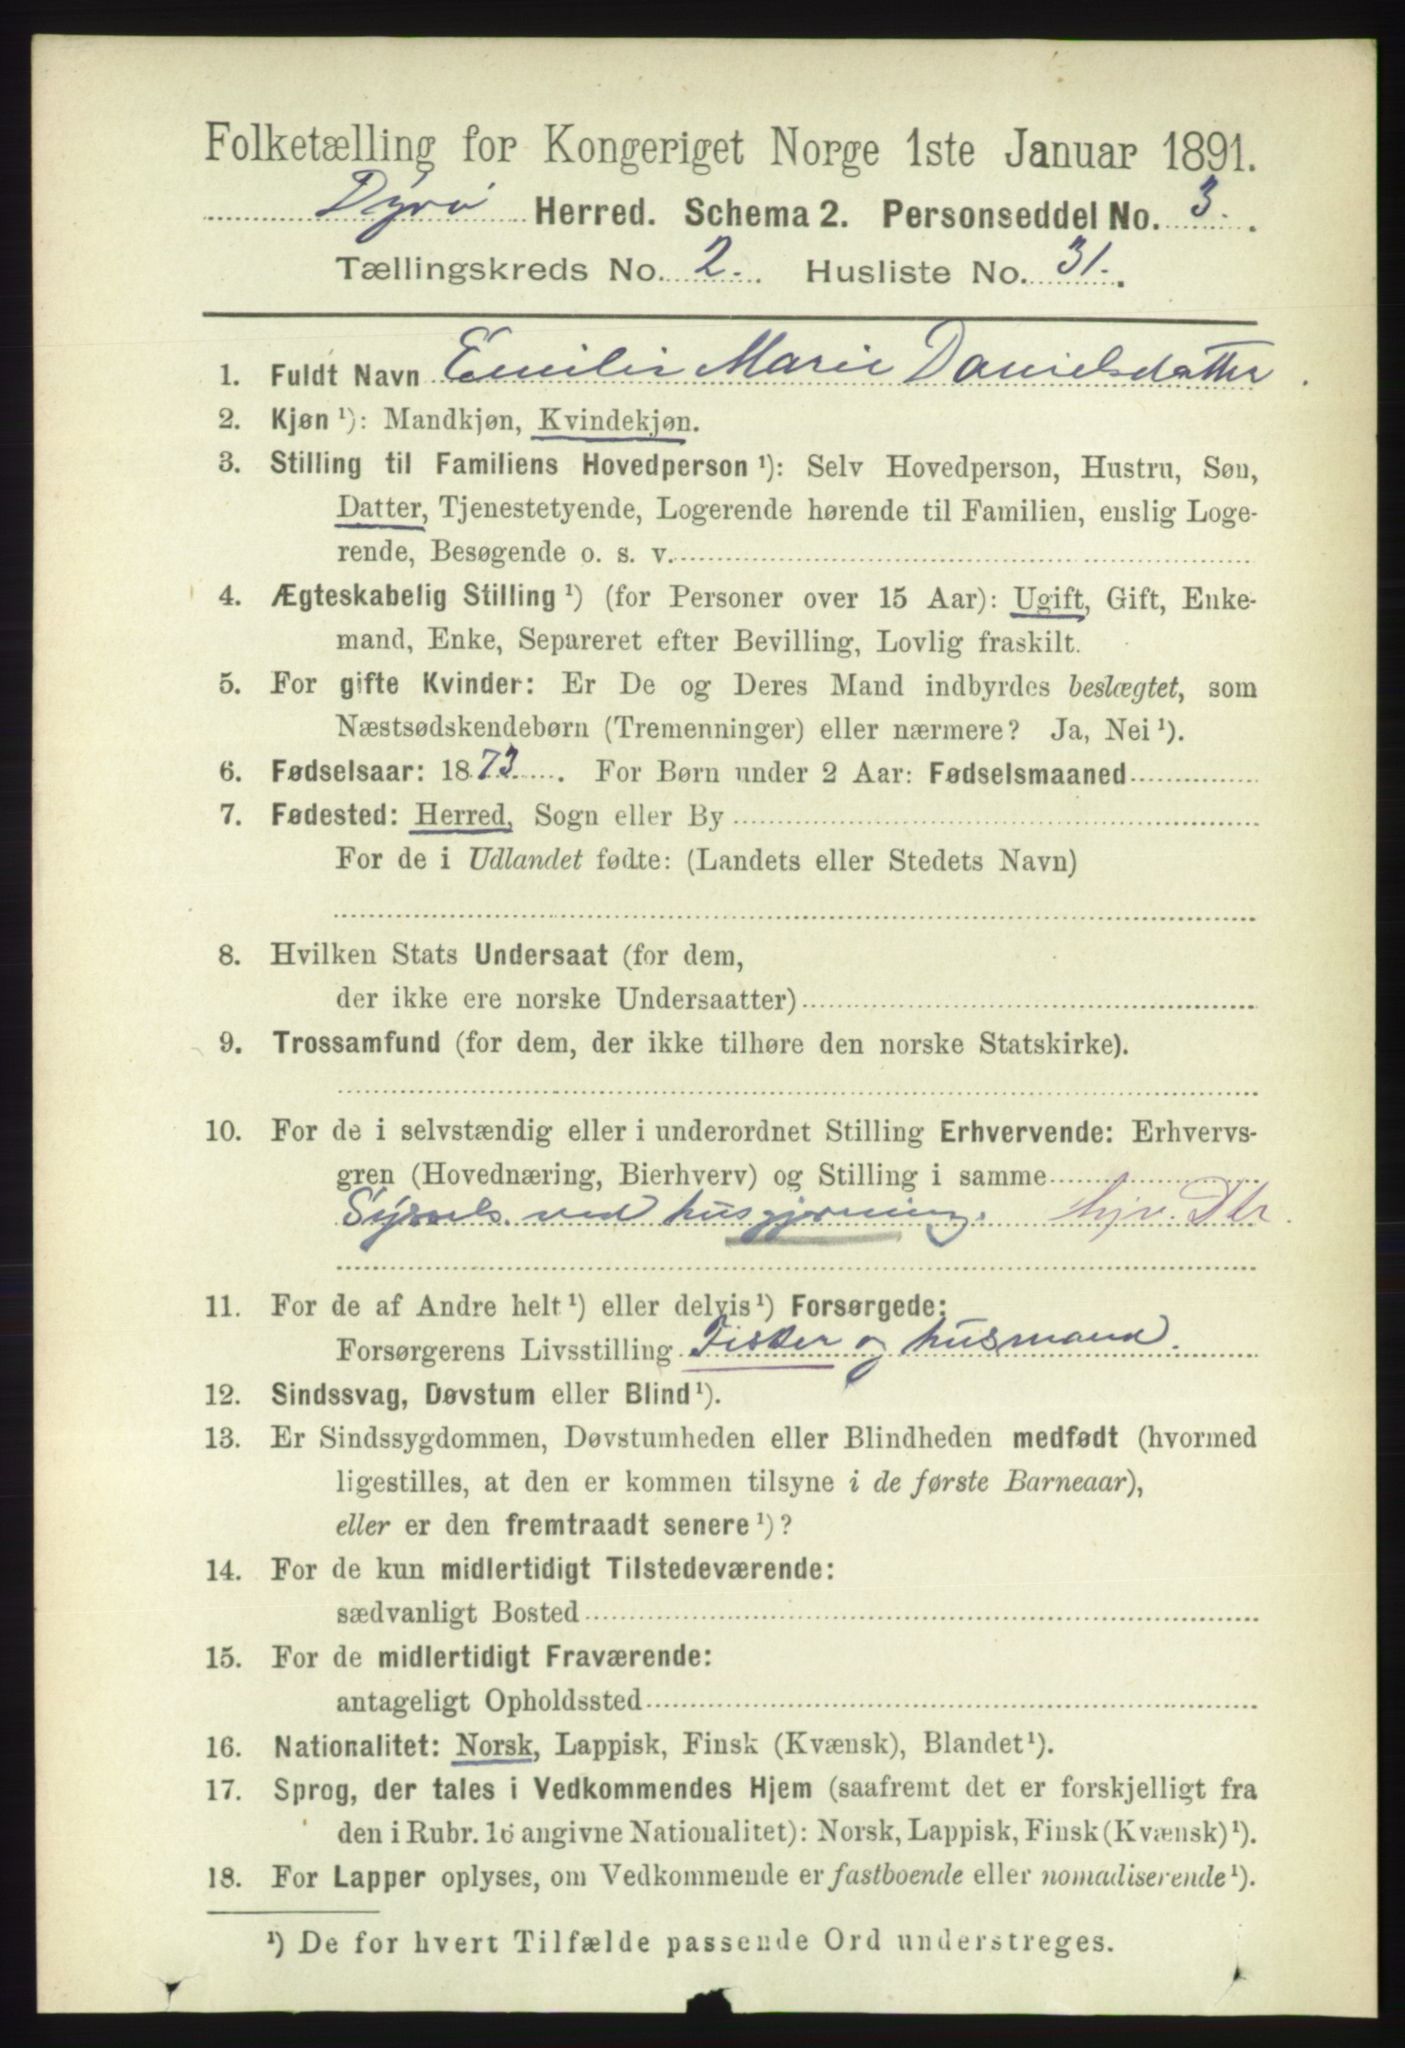 Folketælling for Kongeriget Norge 1ste Januar 1891.
Dyrø Herred. Schema 2. Personseddel No. 3.
Tællingskreds No. 2. Husliste No. 31.
1. Fuldt Navn Emilie Marie Danielsdatter.
2. Kjøn ¹): Mandkjøn, Kvindekjøn.
3. Stilling til Familiens Hovedperson ¹): Selv Hovedperson, Hustru, Søn,
Datter, Tjenestetyende, Logerende hørende til Familien, enslig Loge-
rende, Besøgende o. s. v.
4. Ægteskabelig Stilling ¹) (for Personer over 15 Aar): Ugift, Gift, Enke-
mand, Enke, Separeret efter Bevilling, Lovlig fraskilt.
5. For gifte Kvinder: Er De og Deres Mand indbyrdes beslægtet, som
Næstsødskendebørn (Tremenninger) eller nærmere? Ja, Nei ¹).
6. Fødselsaar: 1873. For Børn under 2 Aar: Fødselsmaaned
7. Fødested: Herred, Sogn eller By
For de i Udlandet fødte: (Landets eller Stedets Navn)
8. Hvilken Stats Undersaat (for dem,
der ikke ere norske Undersaatter)
9. Trossamfund (for dem, der ikke tilhøre den norske Statskirke).
10. For de i selvstændig eller i underordnet Stilling Erhvervende: Erhvervs-
gren (Hovednæring, Bierhverv) og Stilling i samme
Syssels. ved husgjerning. hjv. Dtr.
11. For de af Andre helt ¹) eller delvis ¹) Forsørgede:
Forsørgerens Livsstilling Fisker og husmand.
12. Sindssvag, Døvstum eller Blind ¹).
13. Er Sindssygdommen, Døvstumheden eller Blindheden medfødt (hvormed
ligestilles, at den er kommen tilsyne i de første Barneaar),
eller er den fremtraadt senere ¹)?
14. For de kun midlertidigt Tilstedeværende:
sædvanligt Bosted
15. For de midlertidigt Fraværende:
antageligt Opholdssted
16. Nationalitet: Norsk, Lappisk, Finsk (Kvænsk), Blandet ¹).
17. Sprog, der tales i Vedkommendes Hjem (saafremt det er forskjelligt fra
den i Rubr. 16 angivne Nationalitet): Norsk, Lappisk, Finsk (Kvænsk) ¹).
18. For Lapper oplyses, om Vedkommende er fastboende eller nomadiserende ¹).
¹) De for hvert Tilfælde passende Ord understreges.